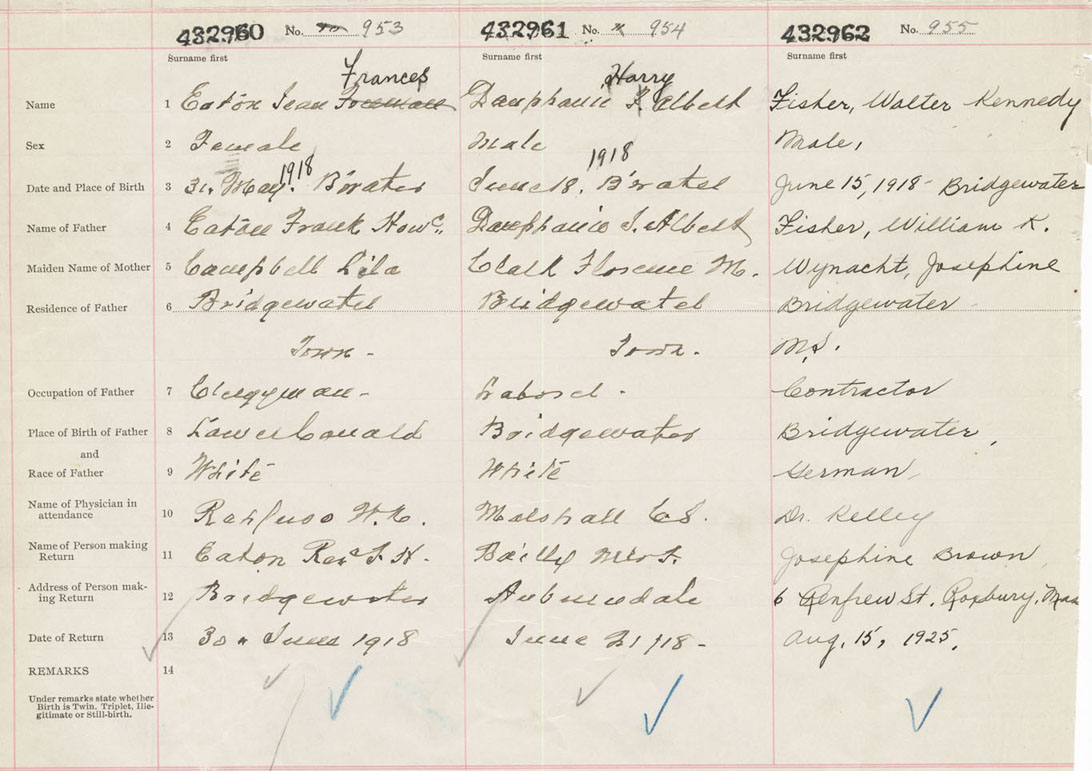 432960 No. 953 432961 No. 954 432962 No. 955
Surname first Surname first Surname first
Frances Harry
Name 1 Eaton Jean Freeman Dauphanie S. Albert Fisher, Walter Kennedy
Sex 2 Female Male Male,
1918 1918
Date and Place of Birth 3 31, May. B'water June 18. B'water June 15, 1918 - Bridgewater
Name of Father 4 Eaton Frank Howc. Dauphanie S. Albert Fisher, William K.
Maiden Name of Mother 5 Campbell Lila Clark Florence M. Wynacht, Josephine
Residence of Father 6 Bridgewater Bridgewater Bridgewater
Town - Town. N.S.
Occupation of Father 7 Clergyman - Laborer - Contractor
Place of Birth of Father 8 Lower Canard Bridgewater Bridgewater,
and
Race of Father 9 White White German
Name of Physician in
attendance 10 W.C. Marshall C.S. Dr. Kelley
Name of Person making
Return 11 Eaton Rev F. H. Bailly Josephine Brown
Address of Person mak-
ing Return 12 Bridgewater Auburndale 6 Renfrew St, Roxbury, Mass
Date of Return 13 30 June 1918 June 21/18 - Aug, 15, 1925.
REMARKS 14
Under remarks state whether
Birth is Twin, Triplet, Ille-
gitimate or Still-birth.